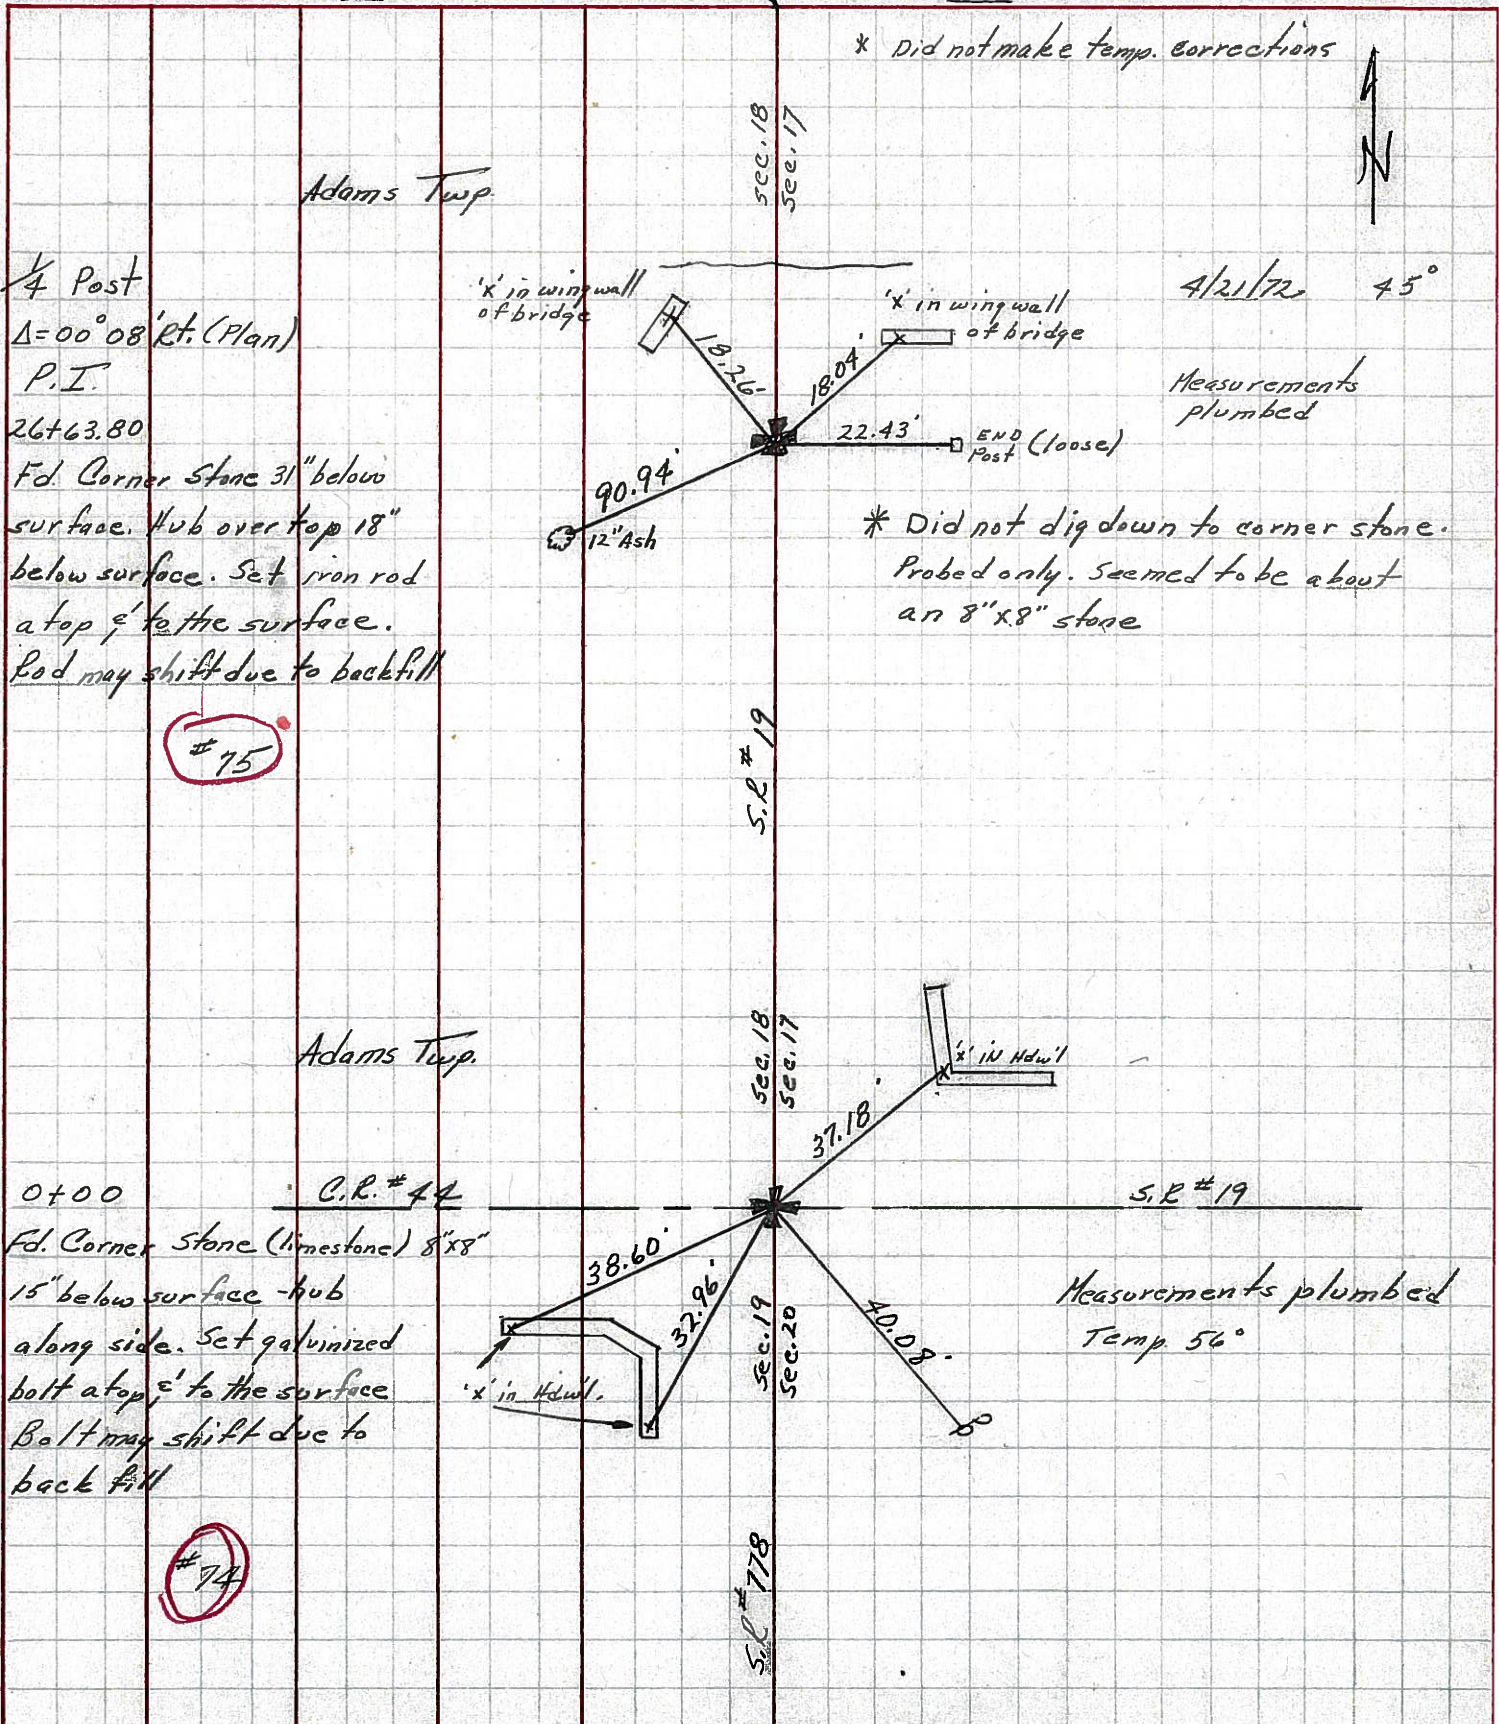 * Did not make temp. corrections
N
Sec. 18
Sec. 17
Adams Twp.
1/4 Post
Δ=00°08' Rt. (Plan)
P.I.
26+63.80
Fd. Corner Stone 31" below
surface. Hub over top 18"
below surface. Set iron rod
atop & to the surface.
Rod may shift due to backfill
#75
'x' in wingwall
of bridge
18.26'
'x' in wingwall
of bridge
18.04'
22.43'
END
Post (loose)
90.94'
12" Ash
4/21/72 45°
Measurements
plumbed
* Did not dig down to corner stone.
Probed only. Seemed to be about
an 8"x8" stone
S.R #19
Adams Twp.
Sec. 18
Sec. 17
'x' IN Hdw'l
37.18'
0+00
C.R. #44
S.R #19
Fd. Corner Stone (limestone) 8"x8"
15" below surface - hub
along side. Set galvinized
bolt atop & to the surface
Bolt may shift due to
back fill
#74
38.60'
32.96'
'x' in Hdw'l.
Sec. 19
Sec. 20
40.08'
Measurements plumbed
Temp. 56°
S.R #778